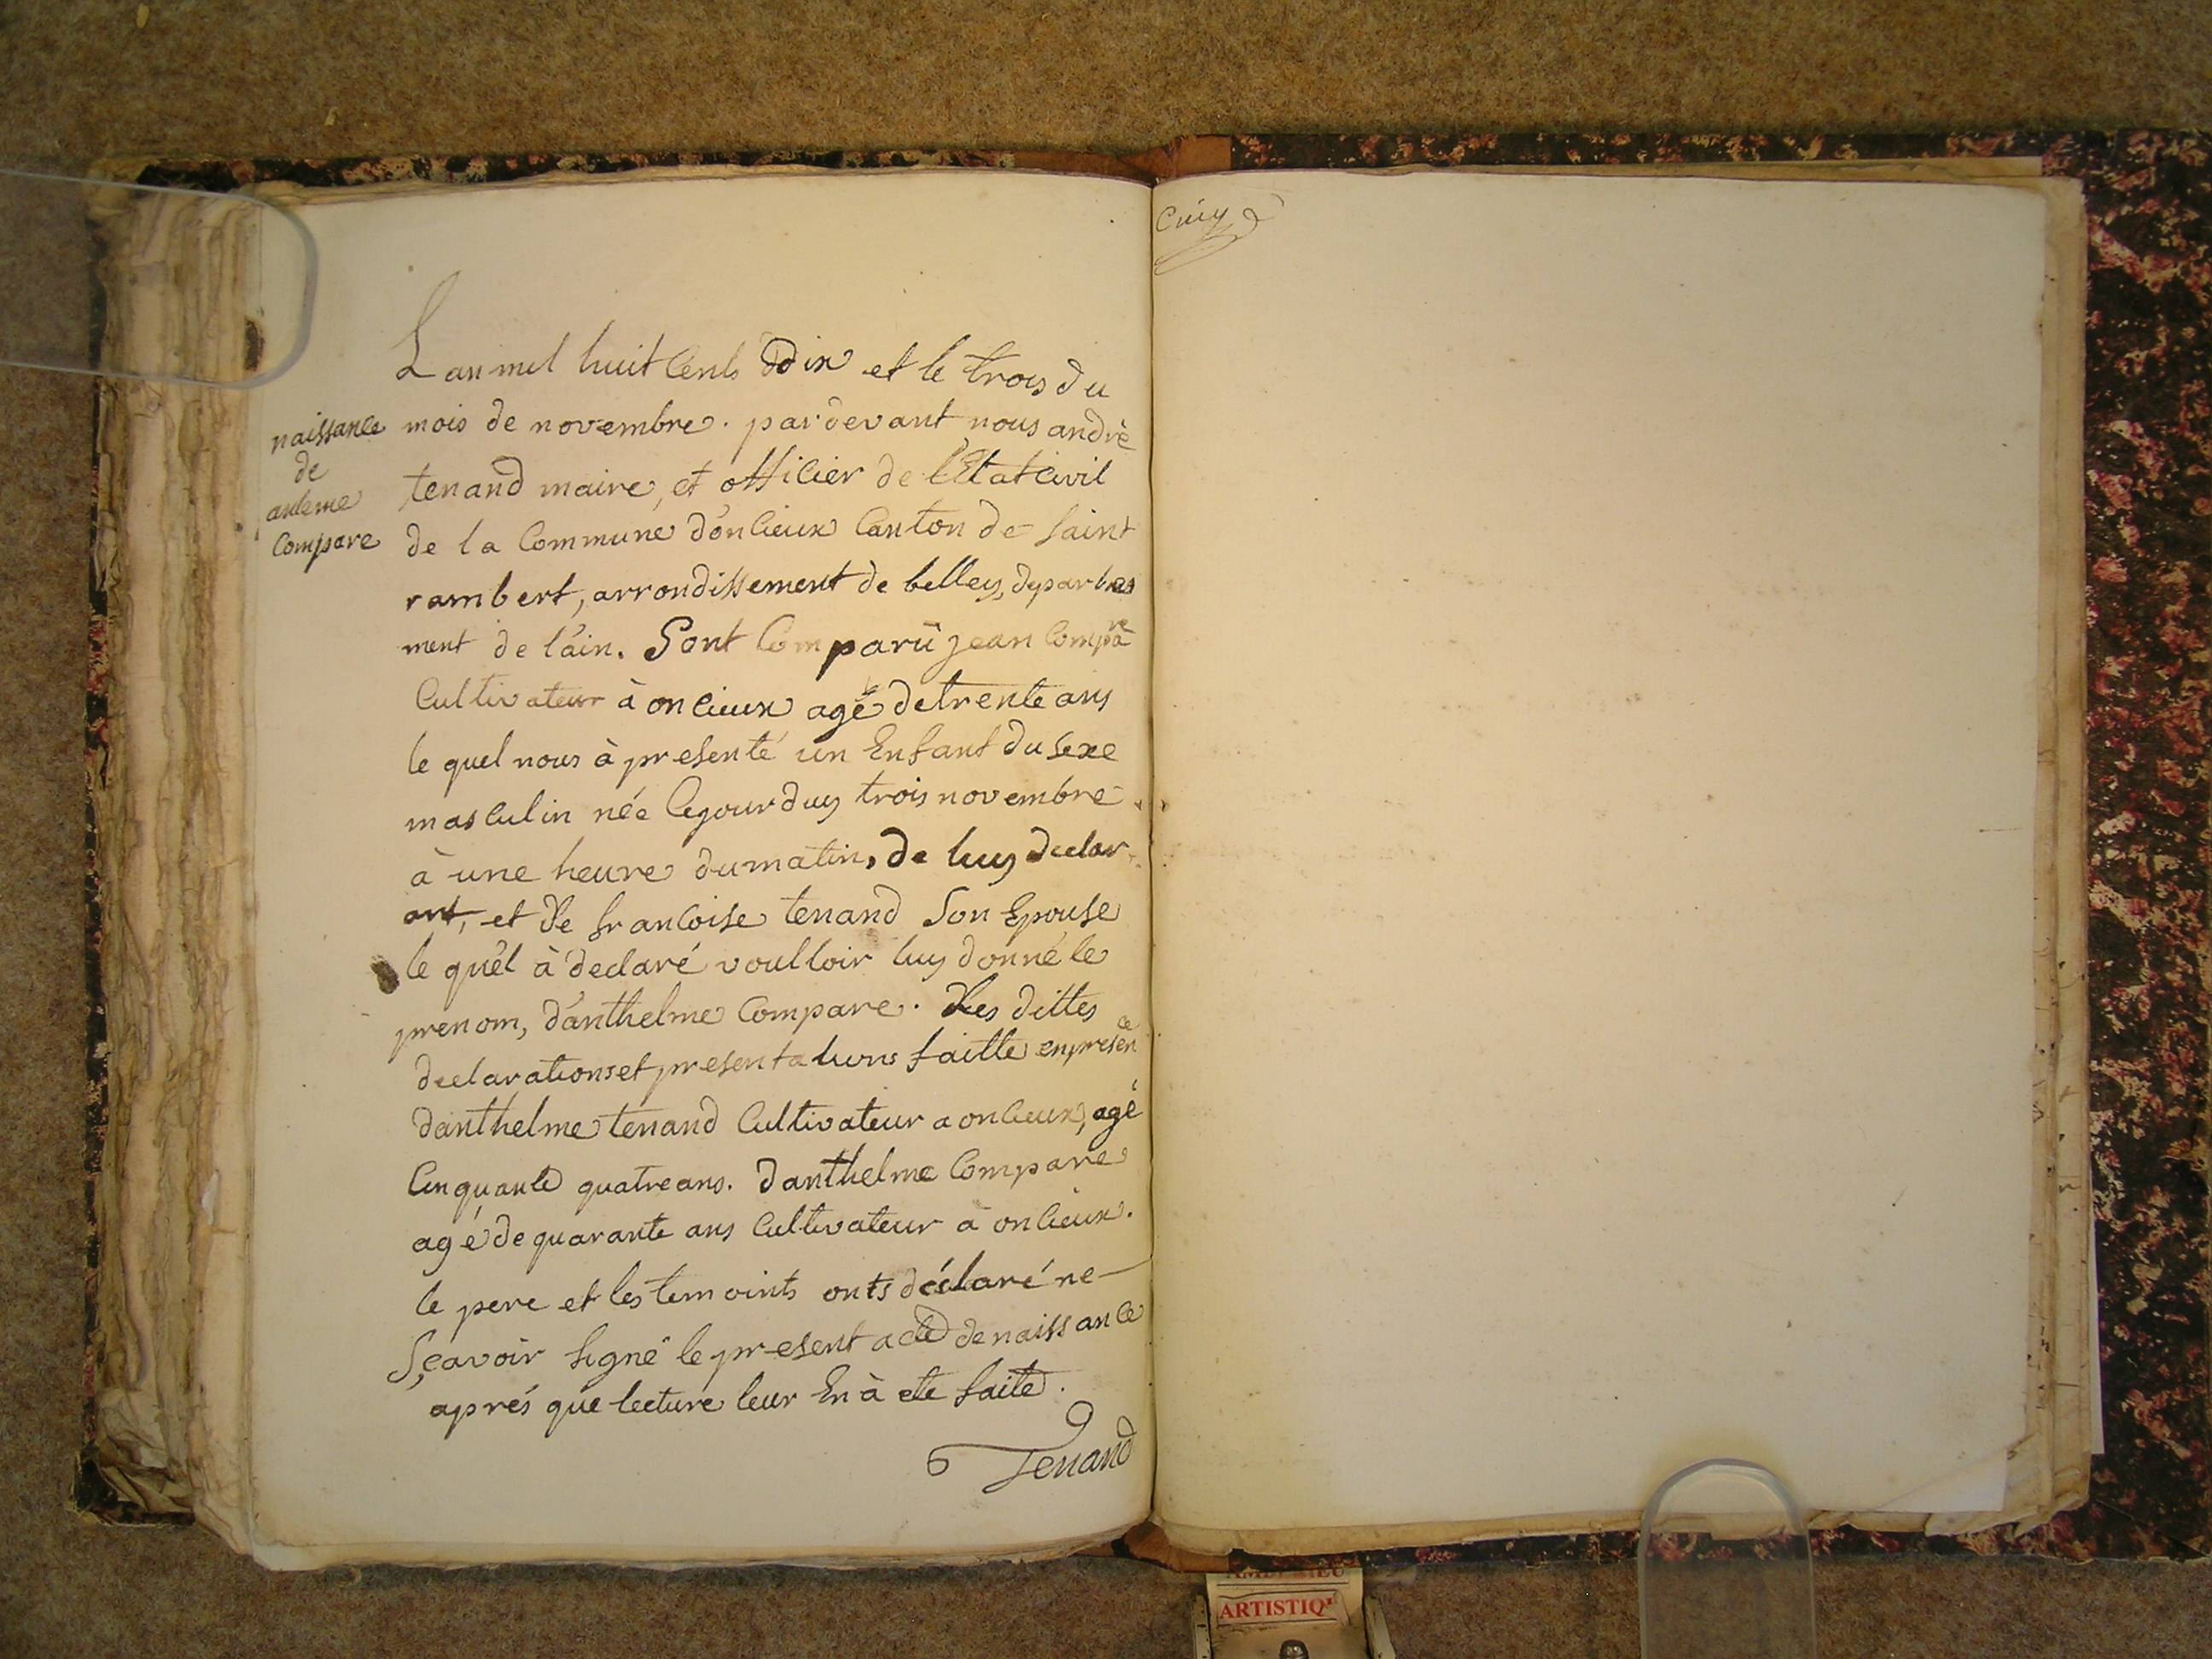 naissance
de
anleme
Compare
Lan mil huit Cents Ddix et le trois du
mois de novembre. par devant nous andrè
tenand maire, et officier de l'Etat Civil
de la Commune d'onCieux Canton de Saint
rambert, arrondissement de belley, departe
ment de l'ain. Sont Comparü jean Compare
Cultivateur à onCieux agé de trente ans
le quel nous à presenté un Enfant du Sexe
masCulin née Cejourduy trois novembre
à une heure du matin, de luy declar
ant, et de franCoise tenand Son Epouse
le quél à declaré voulloir luy donné le
prenom, d'anthelme Compare. Les dittes
declarations et presentations faitte en presence
danthelme tenand Cultivateur a onCieux, agé
Cinquante quatre ans. danthelme Compare
agé de quarante ans Cultivateur à onCieux.
le pere et les temoints onts déclaré ne
Sçavoir Signé le present acte de naissance
aprés que lecture leur En à ete faite.
Tenand
ARTISTIQ